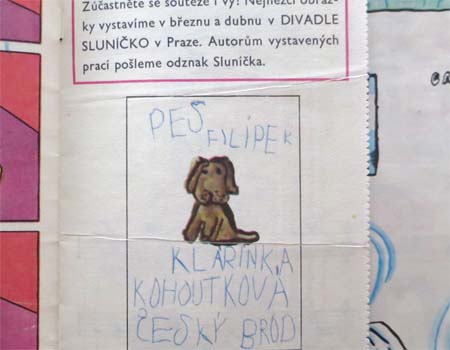 Zúčastněte se soutěže i vy! Nejhezčí obráz-
ky vystavíme v březnu a dubnu v DIVADLE
SLUNÍČKO v Praze. Autorům vystavených
prací pošleme odznak Sluníčka.
PES
FILÍPEK
KLÁRINKA
KOHOUTKOVÁ
ČESKÝ BROD